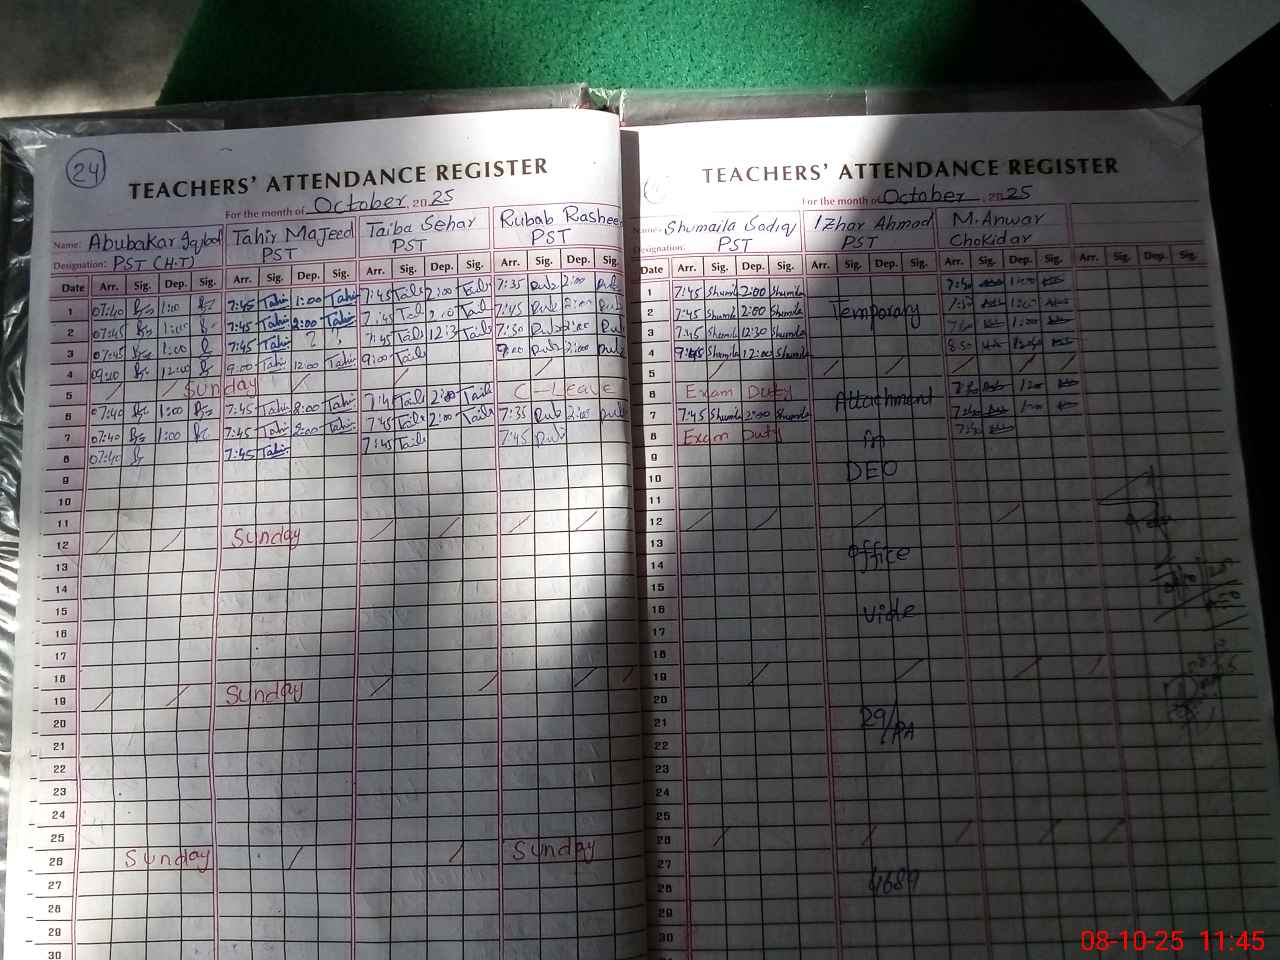 24
TEACHERS' ATTENDANCE REGISTER
For the month of October, 2025
Name: Abubakar Iqbal Tahir Majeed Taiba Sehar Rubab Rasheed
Designation: PST (H.T) PST PST PST
Date Arr. Sig. Dep. Sig. Arr. Sig. Dep. Sig. Arr. Sig. Dep. Sig. Arr. Sig. Dep. Sig.
1 07:40 1:00 7:45 Tahir 1:00 Tahir 7:45 Taib 2:00 Taib 7:35 Rub 2:00 Rub
2 07:45 1:00 7:45 Tahir 2:00 Tahir 7:45 Taib 2:00 Taib 7:45 Rub 2:00 Rub
3 07:45 1:00 7:45 Tahir ? ? 7:45 Taib 12:30 Taib 7:30 Rub 2:00 Rub
4 09:00 12:00 9:00 Tahir 12:00 Tahir 9:00 Taib 9:00 Rub 2:00 Rub
5 Sunday
6 07:40 1:00 7:45 Tahir 2:00 Tahir 7:45 Taib 2:00 Taib C-Leave
7 07:40 1:00 7:45 Tahir 2:00 Tahir 7:45 Taib 2:00 Taib 7:35 Rub 2:00 Rub
8 07:40 7:45 Tahir 7:45 Taib 7:45 Rub
9
10
11
12 Sunday
13
14
15
16
17
18
19 Sunday
20
21
22
23
24
25
26 Sunday Sunday
27
28
29
30
TEACHERS' ATTENDANCE REGISTER
For the month of October, 2025
Name: Shumaila Sadiq Izhar Ahmad M. Anwar
Designation: PST PST Chokidar
Date Arr. Sig. Dep. Sig. Arr. Sig. Dep. Sig. Arr. Sig. Dep. Sig. Arr. Sig. Dep. Sig.
1 7:45 Shumila 2:00 Shumila 7:30 1:00
2 7:45 Shumila 2:00 Shumila Temporary 7:30 1:00
3 7:45 Shumila 12:30 Shumila 7:30 1:00
4 9:45 Shumila 12:00 Shumila 8:50 12:50
5
6 Exam Duty Attachment 7:30 1:00
7 7:45 Shumila 2:00 Shumila 7:30 1:00
8 Exam Duty in 7:30
9
10 DEO
11
12
13
14 office
15
16 vide
17
18
19
20
21 29/PA
22
23
24
25
26
27
28 4689
29
30
08-10-25 11:45